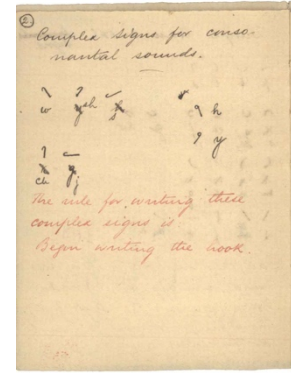 2
Complex signs for conso-
nantal sounds.
w sh
h
y
ch j
The rule for writing these
complex signs is
Begin writing the hook.